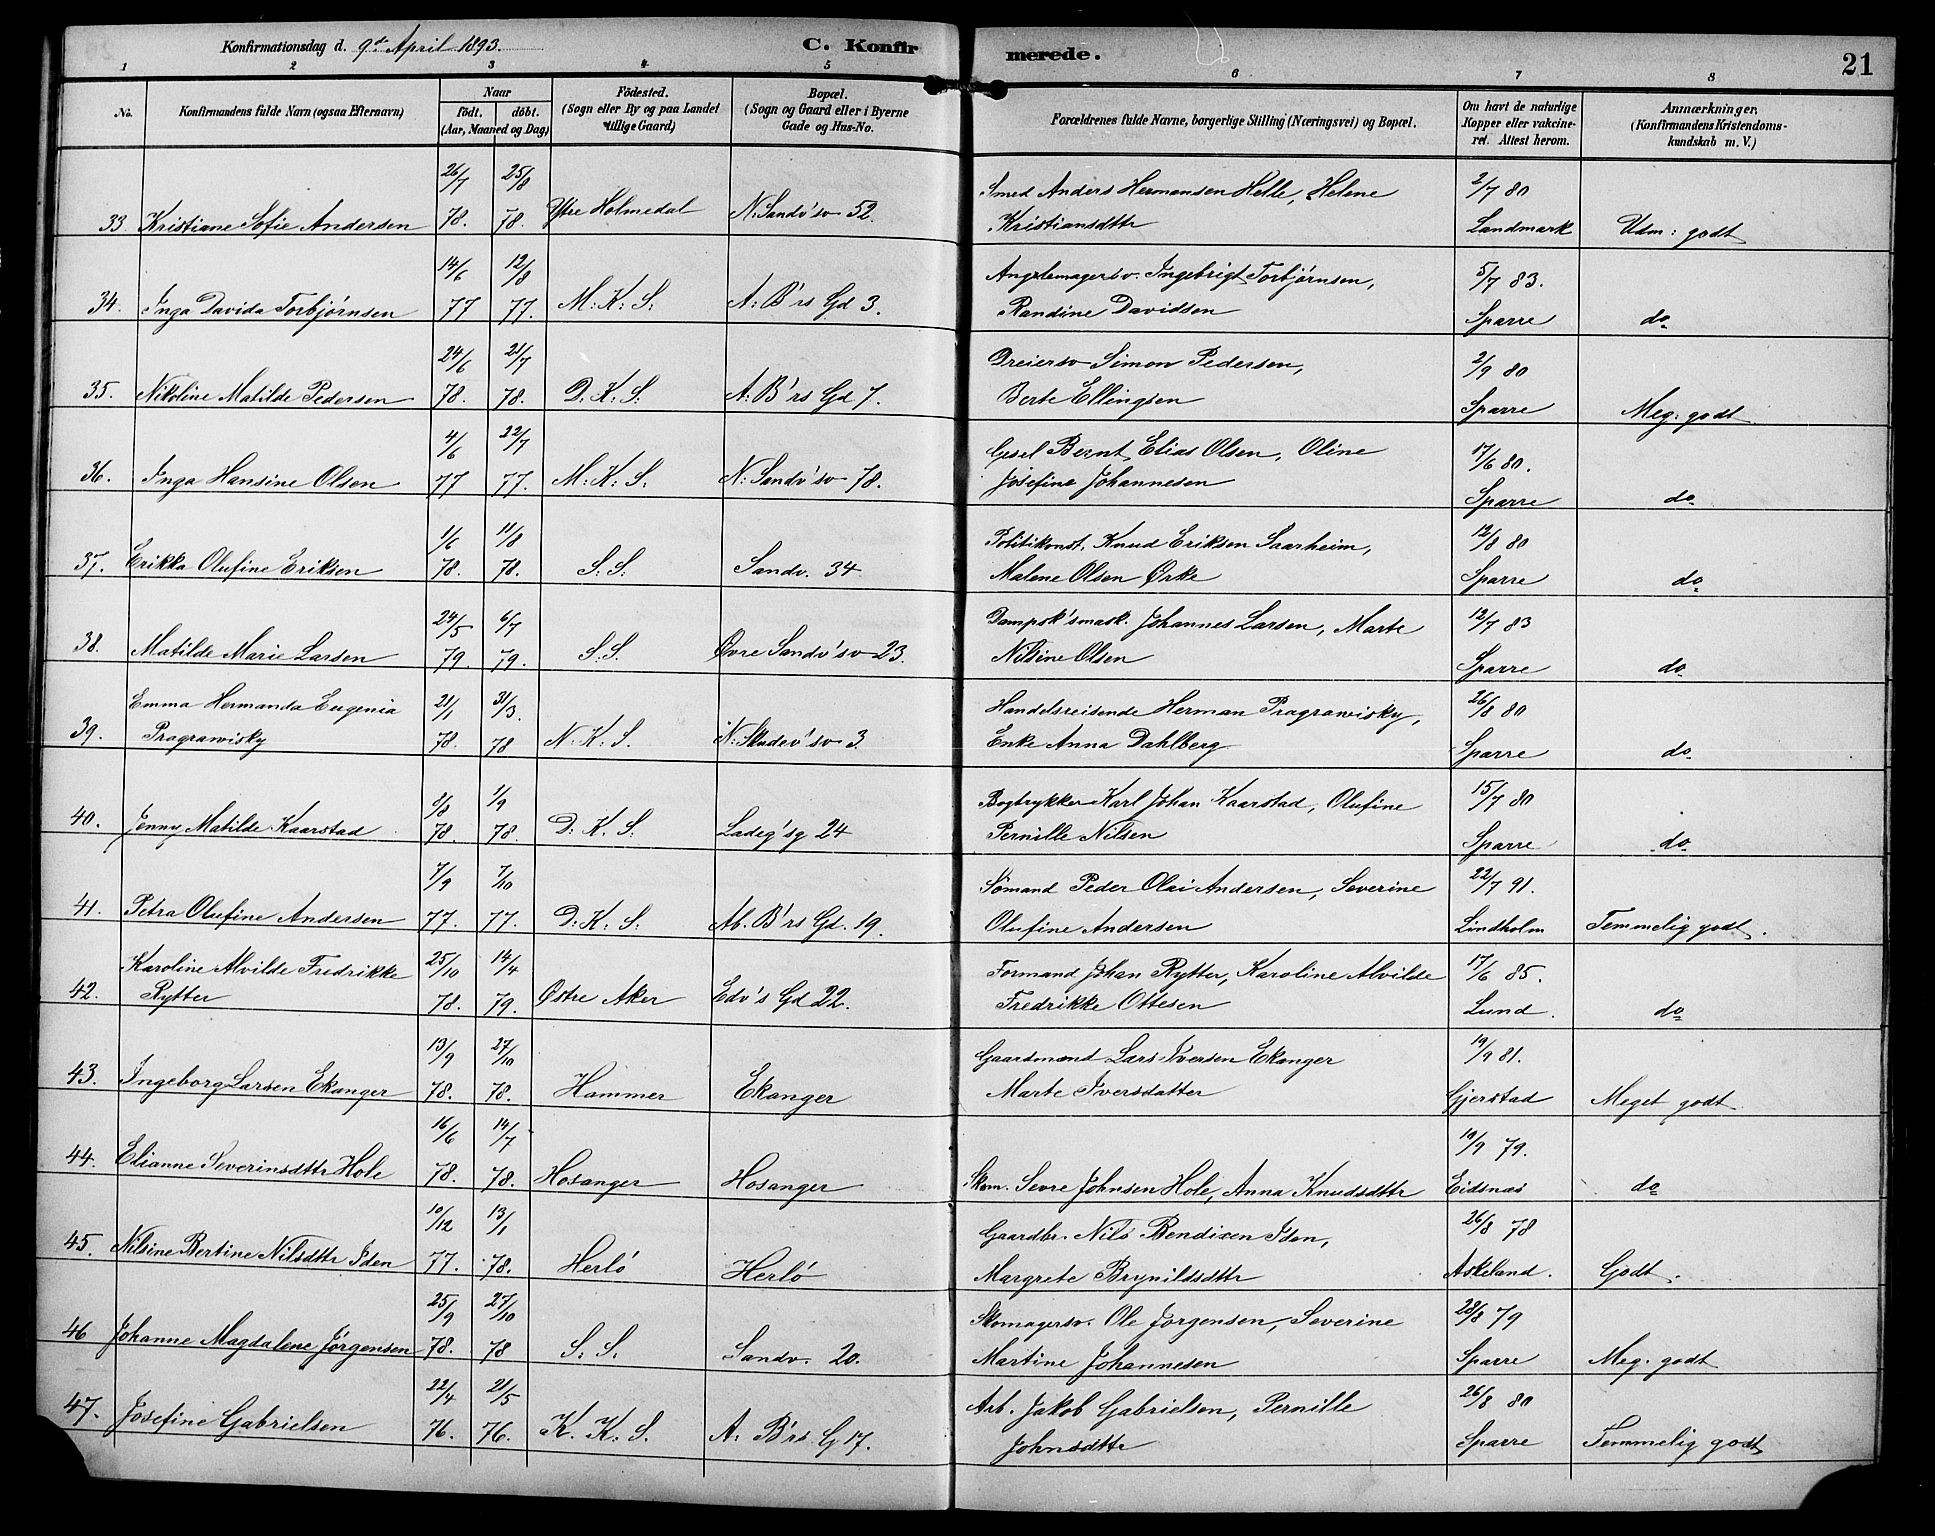 Konfirmationsdag d. 9de April 1893. C. Konfirmerede. 21
1 2 3 4 5 6 7 8
No. Konfirmandens fulde Navn (ogsaa Efternavn) Naar födt. döbt. (Aar, Maaned og Dag) Födested. (Sogn eller By og paa Landet tillige Gaard) Bopæl. (Sogn og Gaard eller i Byerne Gade og Hus-No. Forældrenes fulde Navne, borgerlige Stilling (Næringsvei) og Bopæl. Om havt de naturlige Kopper eller vakcineret. Attest herom. Anmærkninger, (Konfirmandens Kristendomskundskab m. V.)
26/7 25/8 Smed Anders Hermansen Helle, Helene 2/7 80
33. Kristiane Sofie Andersen 78. 78. Ytre Holmedal N. Sandv'sv 52. Kristiansdttr Landmark Udm: godt
14/6 12/8 Ingebrigt Torbjørnsen, 5/7 83.
34. Inga Davida Torbjørnsen 77 77. M: K: S: A: B'rs Gd 3. Randine Davidsen Sparre do
24/6 21/7 Dreiersv Simon Pedersen, 2/9 80
35. Nikoline Matilde Pedersen 78. 78. D. K. S A: B'rs Gd 7. Berte Ellingsen Sparre Meg: godt
4/6 22/7 Gesel Bernt Elias Olsen, Oline 17/6 80.
36. Inga Hansine Olsen 77 77. M: K: S: N: Sandv'sv 78. Josefine Johannesen Sparre do
1/6 11/8 Politikonst. Knud Eriksen Saarheim, 12/8 80
37. Erikka Olufine Eriksen 78. 78. S: S: Sandv. 34 Malene Olsen Ørke Sparre do
24/5 6/7 Dampsk'smask. Johannes Larsen, Marte 12/7 83
38. Matilde Marie Larsen 79. 79. S.S. Øvre Sandv'sv 23. Nilsine Olsen Sparre do
Emma Hermanda Eugenia 21/1 31/3. Handelsreisende Herman Pragrawisky, 26/8 80
39. Pragrawisky 78. 78 N. K. S. 3 Enke Anna Dahlberg Sparre do
1/9 Bogtrykker Karl Johan Kaarstad, Olufine 15/7 80
40. Jenny Matilde Kaarstad 78. 78. D: K. S: Ladeg'sg 24 Pernille Nilsen Sparre do
7/9 7/10 Sömand Peder Olai Andersen, Severine 22/7 91.
41. Petra Olufine Andersen 77. 77. D: K: S: Ab. B'rs Gd. 19. Olufine Andersen Lindholm Temmelig godt.
Karoline Alvilde Fredrikke 25/10 14/4 Formand Johan Rytter, Karoline Alvilde 17/6 85.
42. Rytter 78. 79. Østre Aker Edv's Gd 22. Fredrikke Ottesen Lund. do
13/9 27/10 Gaardmand Lars Iversen Ekanger 19/9 81.
43. Ingeborg Larsen Ekanger 78. 78. Hammer Ekanger Marte Iversdatter Gjerstad Meget godt
16/6 14/7 19/9 79.
44. Elianne Severinsdttr Hole 78. 78. Hosanger Hosanger Skom. Sevre Johnsen Hole, Anna Knudsdttr Eidsnæs do
10/12 13/1 Gaardbr. Nils Bendixen Iden, 26/8 78
45. Nilsine Bertine Nilsdttr Iden 77. 78. Herlö Herlö Margrete Brynildsdttr Askeland. Godt.
25/9 27/10 Skomagersv. Ole Jørgensen, Severine 28/8 79
46 Johanne Magdalene Jørgensen 78. 78 S. S. Sandv. 20. Martine Johannesen Sparre Meg. godt
22/4 21/5 Arb. Jakob Gabrielsen, Pernille 26/8 80
47. Josefine Gabrielsen 76. 76. K. K: S. A: B'rs G 17. Johnsdttr Sparre Temmelig godt